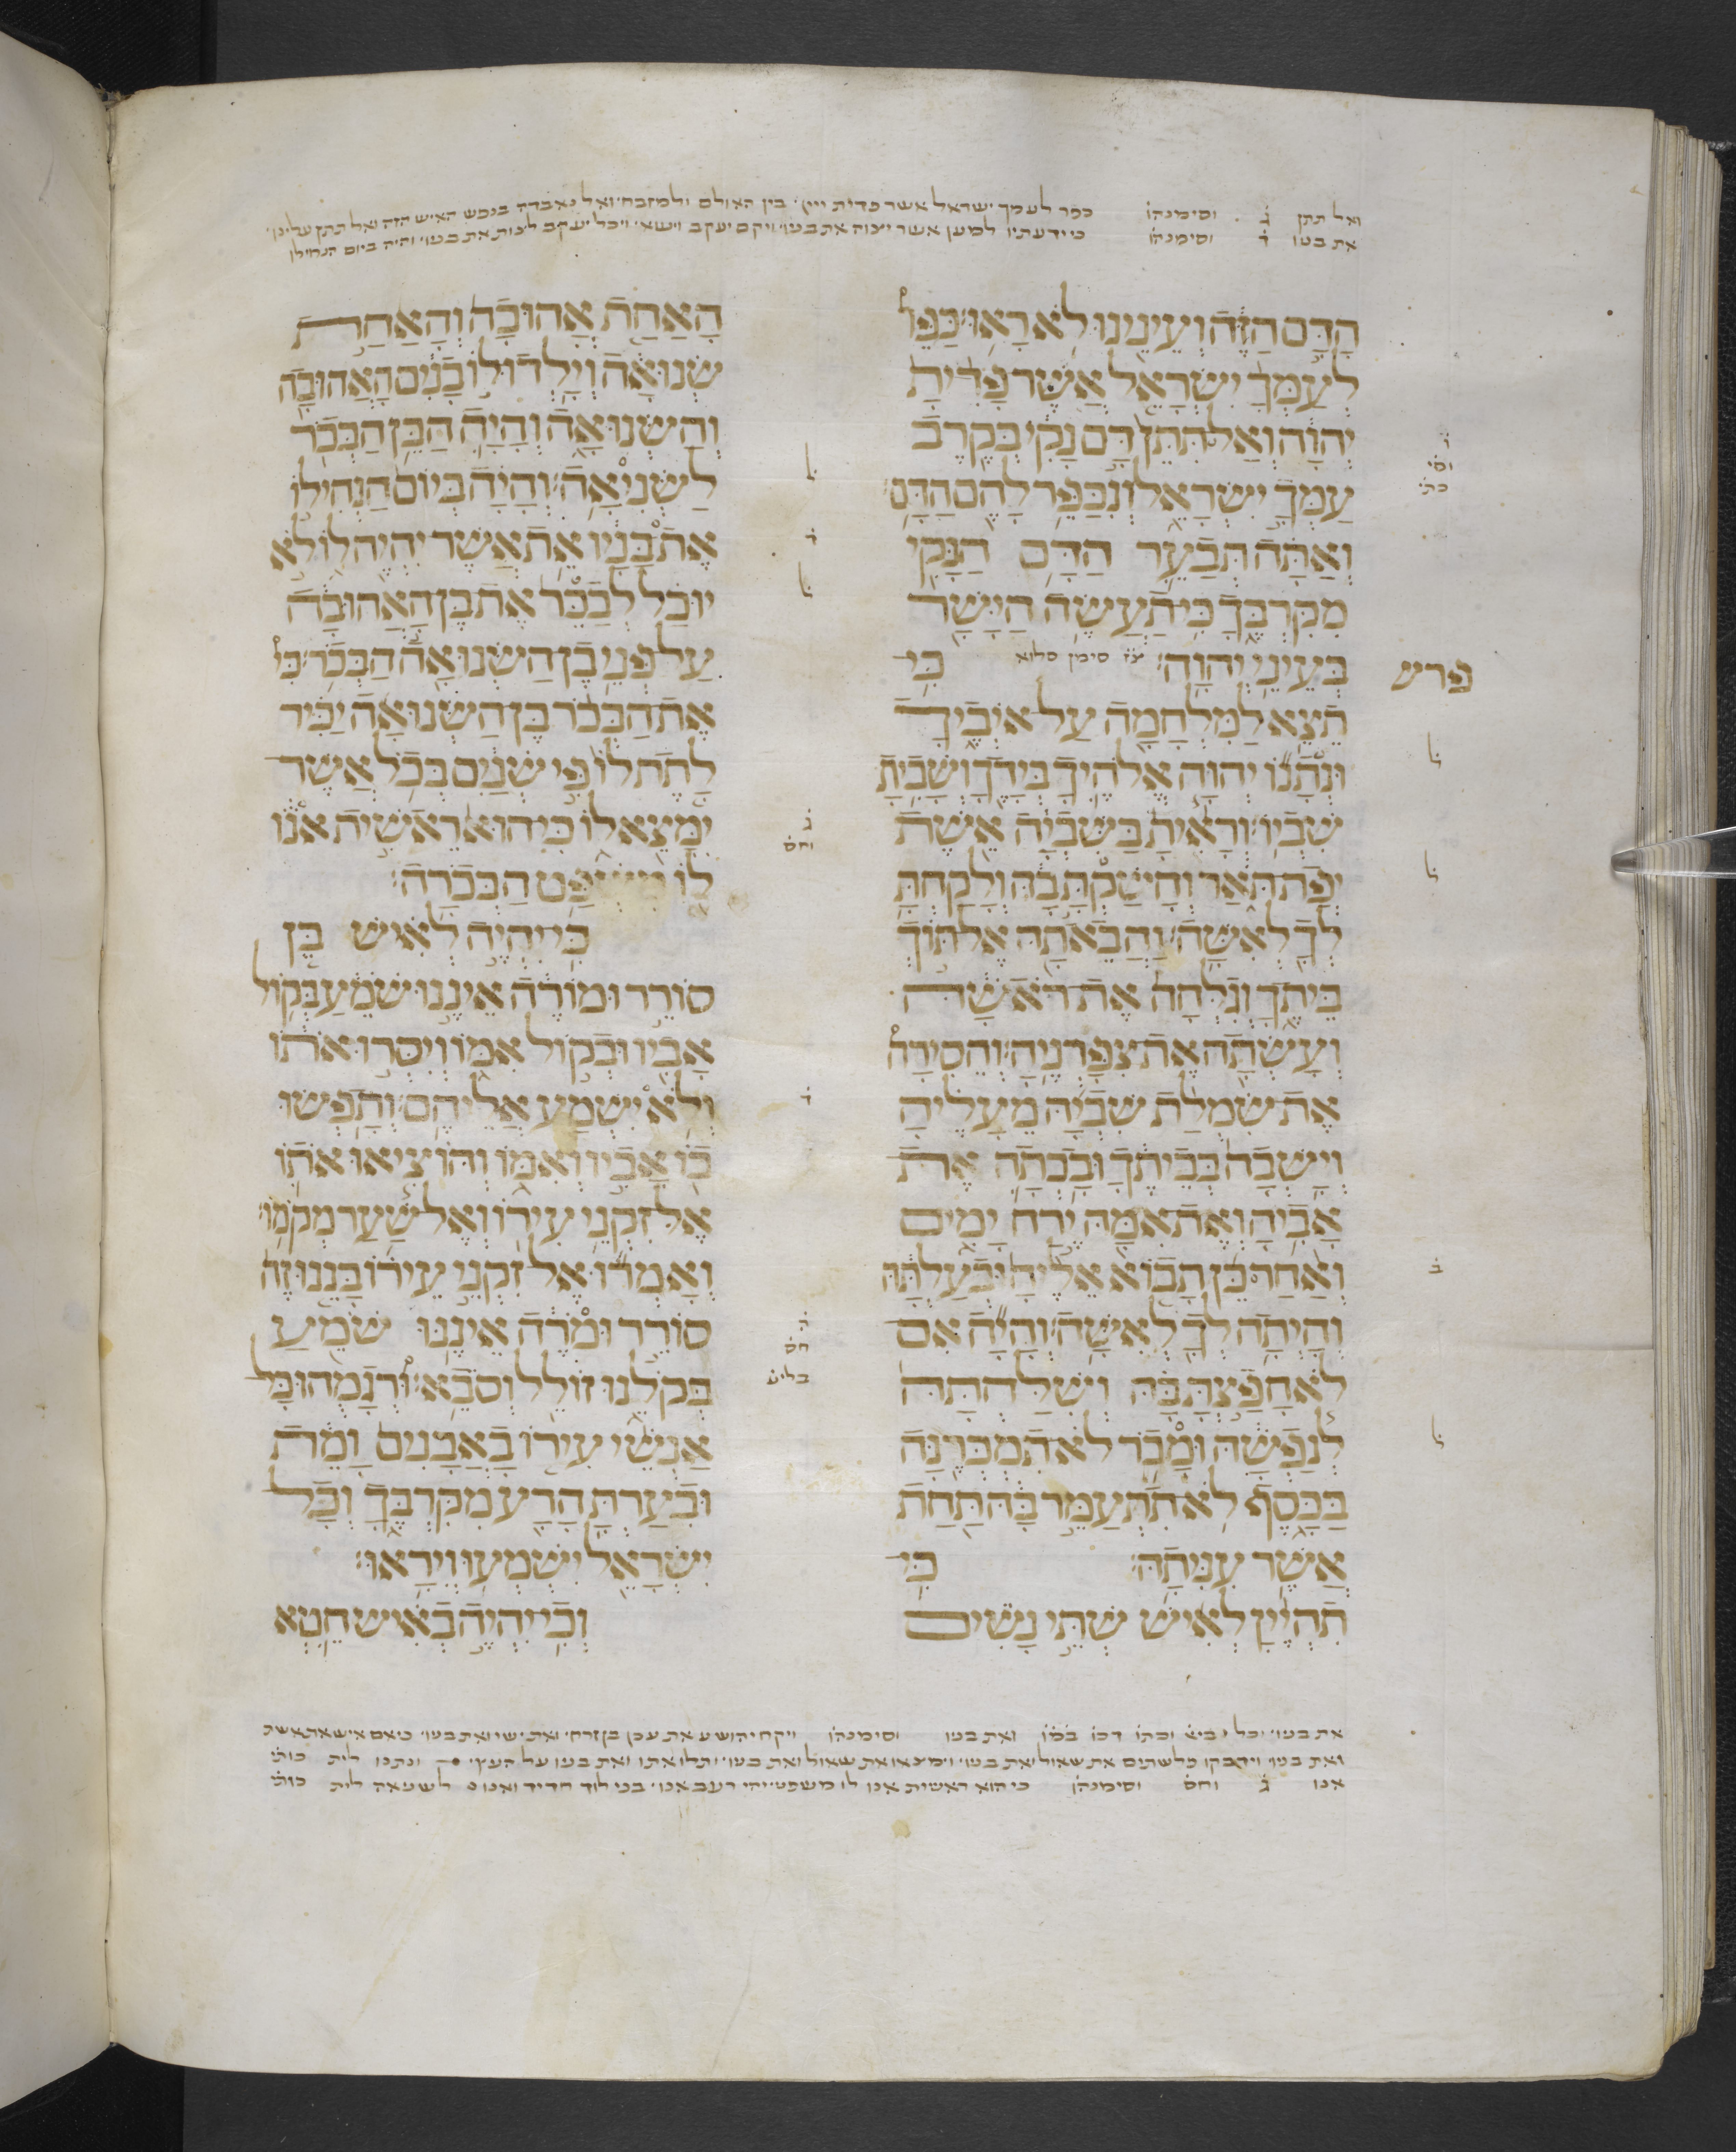 ואל תתן ג וסימנהו כפר לעמך ישראל אשר פדית ייי בין האולם ולמזבח ואל נאבדה בנפש האיש הזה ואל תתן עלינו
את בניו ד וסימנהו כי ידעתיו למען אשר יצוה את בניו ויקם יעקב וישא ויכל יעקב לצות את בניו והיה ביום הנחילו
הַדָּם הַזֶּה וְעֵינֵינוּ לֹא רָאוּ׃ כַּפֵּר
לְעַמְּךָ יִשְׂרָאֵל אֲשֶׁר פָּדִיתָ
יְהוָה וְאַל תִּתֵּן דָּם נָקִי בְּקֶרֶב
עַמְּךָ יִשְׂרָאֵל וְנִכַּפֵּר לָהֶם הַדָּם׃
וְאַתָּה תְּבַעֵר הַדָּם הַנָּקִי
מִקִּרְבֶּךָ כִּי תַעֲשֶׂה הַיָּשָׁר
בְּעֵינֵי יְהוָה׃ צז סימן סלוא כִּי
פרש
תֵצֵא לַמִּלְחָמָה עַל אֹיְבֶיךָ
וּנְתָנוֹ יְהוָה אֱלֹהֶיךָ בְּיָדֶךָ וְשָׁבִיתָ
שִׁבְיוֹ׃ וְרָאִיתָ בַּשִּׁבְיָה אֵשֶׁת
יְפַת תֹּאַר וְחָשַׁקְתָּ בָהּ וְלָקַחְתָּ
לְךָ לְאִשָּׁה׃ וַהֲבֵאתָהּ אֶל תּוֹךְ
בֵּיתֶךָ וְגִלְּחָה אֶת רֹאשָׁהּ
וְעָשְׂתָה אֶת צִפָּרְנֶיהָ׃ וְהֵסִירָה
אֶת שִׂמְלַת שִׁבְיָהּ מֵעָלֶיהָ
וְיָשְׁבָה בְּבֵיתֶךָ וּבָכְתָה אֶת
אָבִיהָ וְאֶת אִמָּהּ יֶרַח יָמִים
וְאַחַר כֵּן תָּבוֹא אֵלֶיהָ וּבְעַלְתָּהּ
וְהָיְתָה לְךָ לְאִשָּׁה׃ וְהָיָה אִם
לֹא חָפַצְתָּ בָּהּ וְשִׁלַּחְתָּהּ
לְנַפְשָׁהּ וּמָכֹר לֹא תִמְכְּרֶנָּה
בַּכָּסֶף לֹא תִתְעַמֵּר בָּהּ תַּחַת
אֲשֶׁר עִנִּיתָהּ׃ כִּי
תִהְיֶיןָ לְאִישׁ שְׁתֵּי נָשִׁים
הָאַחַת אֲהוּבָה וְהָאַחַת
שְׂנוּאָה וְיָלְדוּ לוֹ בָנִים הָאֲהוּבָה
וְהַשְּׂנוּאָה וְהָיָה הַבֵּן הַבְּכֹר
לַשְּׂנִיאָה׃ וְהָיָה בְּיוֹם הַנְחִילוֹ
אֶת בָּנָיו אֵת אֲשֶׁר יִהְיֶה לוֹ לֹא
יוּכַל לְבַכֵּר אֶת בֶּן הָאֲהוּבָה
עַל פְּנֵי בֶן הַשְּׂנוּאָה הַבְּכֹר׃ כִּי
אֶת הַבְּכֹר בֶּן הַשְּׂנוּאָה יַכִּיר
לָתֶת לוֹ פִּי שְׁנַיִם בְּכֹל אֲשֶׁר
יִמָּצֵא לוֹ כִּי הוּא רֵאשִׁית אֹנוֹ
לוֹ מִשְׁפַּט הַבְּכֹרָה׃
כִּי יִהְיֶה לְאִישׁ בֵּן
סוֹרֵר וּמוֹרֶה אֵינֶנּוּ שֹׁמֵעַ בְּקוֹל
אָבִיו וּבְקוֹל אִמּוֹ וְיִסְּרוּ אֹתוֹ
וְלֹא יִשְׁמַע אֲלֵיהֶם׃ וְתָפְשׂוּ
בוֹ אָבִיו וְאִמּוֹ וְהוֹצִיאוּ אֹתוֹ
אֶל זִקְנֵי עִירוֹ וְאֶל שַׁעַר מְקֹמוֹ׃
וְאָמְרוּ אֶל זִקְנֵי עִירוֹ בְּנֵנוּ זֶה
סוֹרֵר וּמֹרֶה אֵינֶנּוּ שֹׁמֵעַ
בְּקֹלֵנוּ זוֹלֵל וְסֹבֵא׃ וּרְגָמֻהוּ כָּל
אַנְשֵׁי עִירוֹ בָאֲבָנִים וָמֵת
וּבִעַרְתָּ הָרָע מִקִּרְבֶּךָ וְכָל
יִשְׂרָאֵל יִשְׁמְעוּ וְיִרָאוּ׃
וְכִי יִהְיֶה בְאִישׁ חֵטְא
את בניו וכל ואת בניו וסימנהו ויקח יהושע את עכן בן זרח ואת ישי ואת בניו כי אם איש את אשת
ואת בניו וידבקו פלשתים את שאול ואת בניו וימצאו את שאול ואת בניו ותלו אתו ואת בניו על העץ ונתנו לית כות
אנו ג וחס וסימנהו כי הוא ראשית אנו לו משפט יהי רעב אנו בני לוד חדיד ואונו לשנאה לית כות